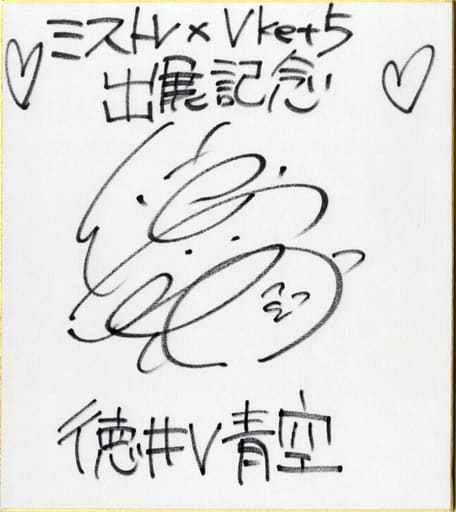 ミストレ×Vket5
出展記念
徳井V青空